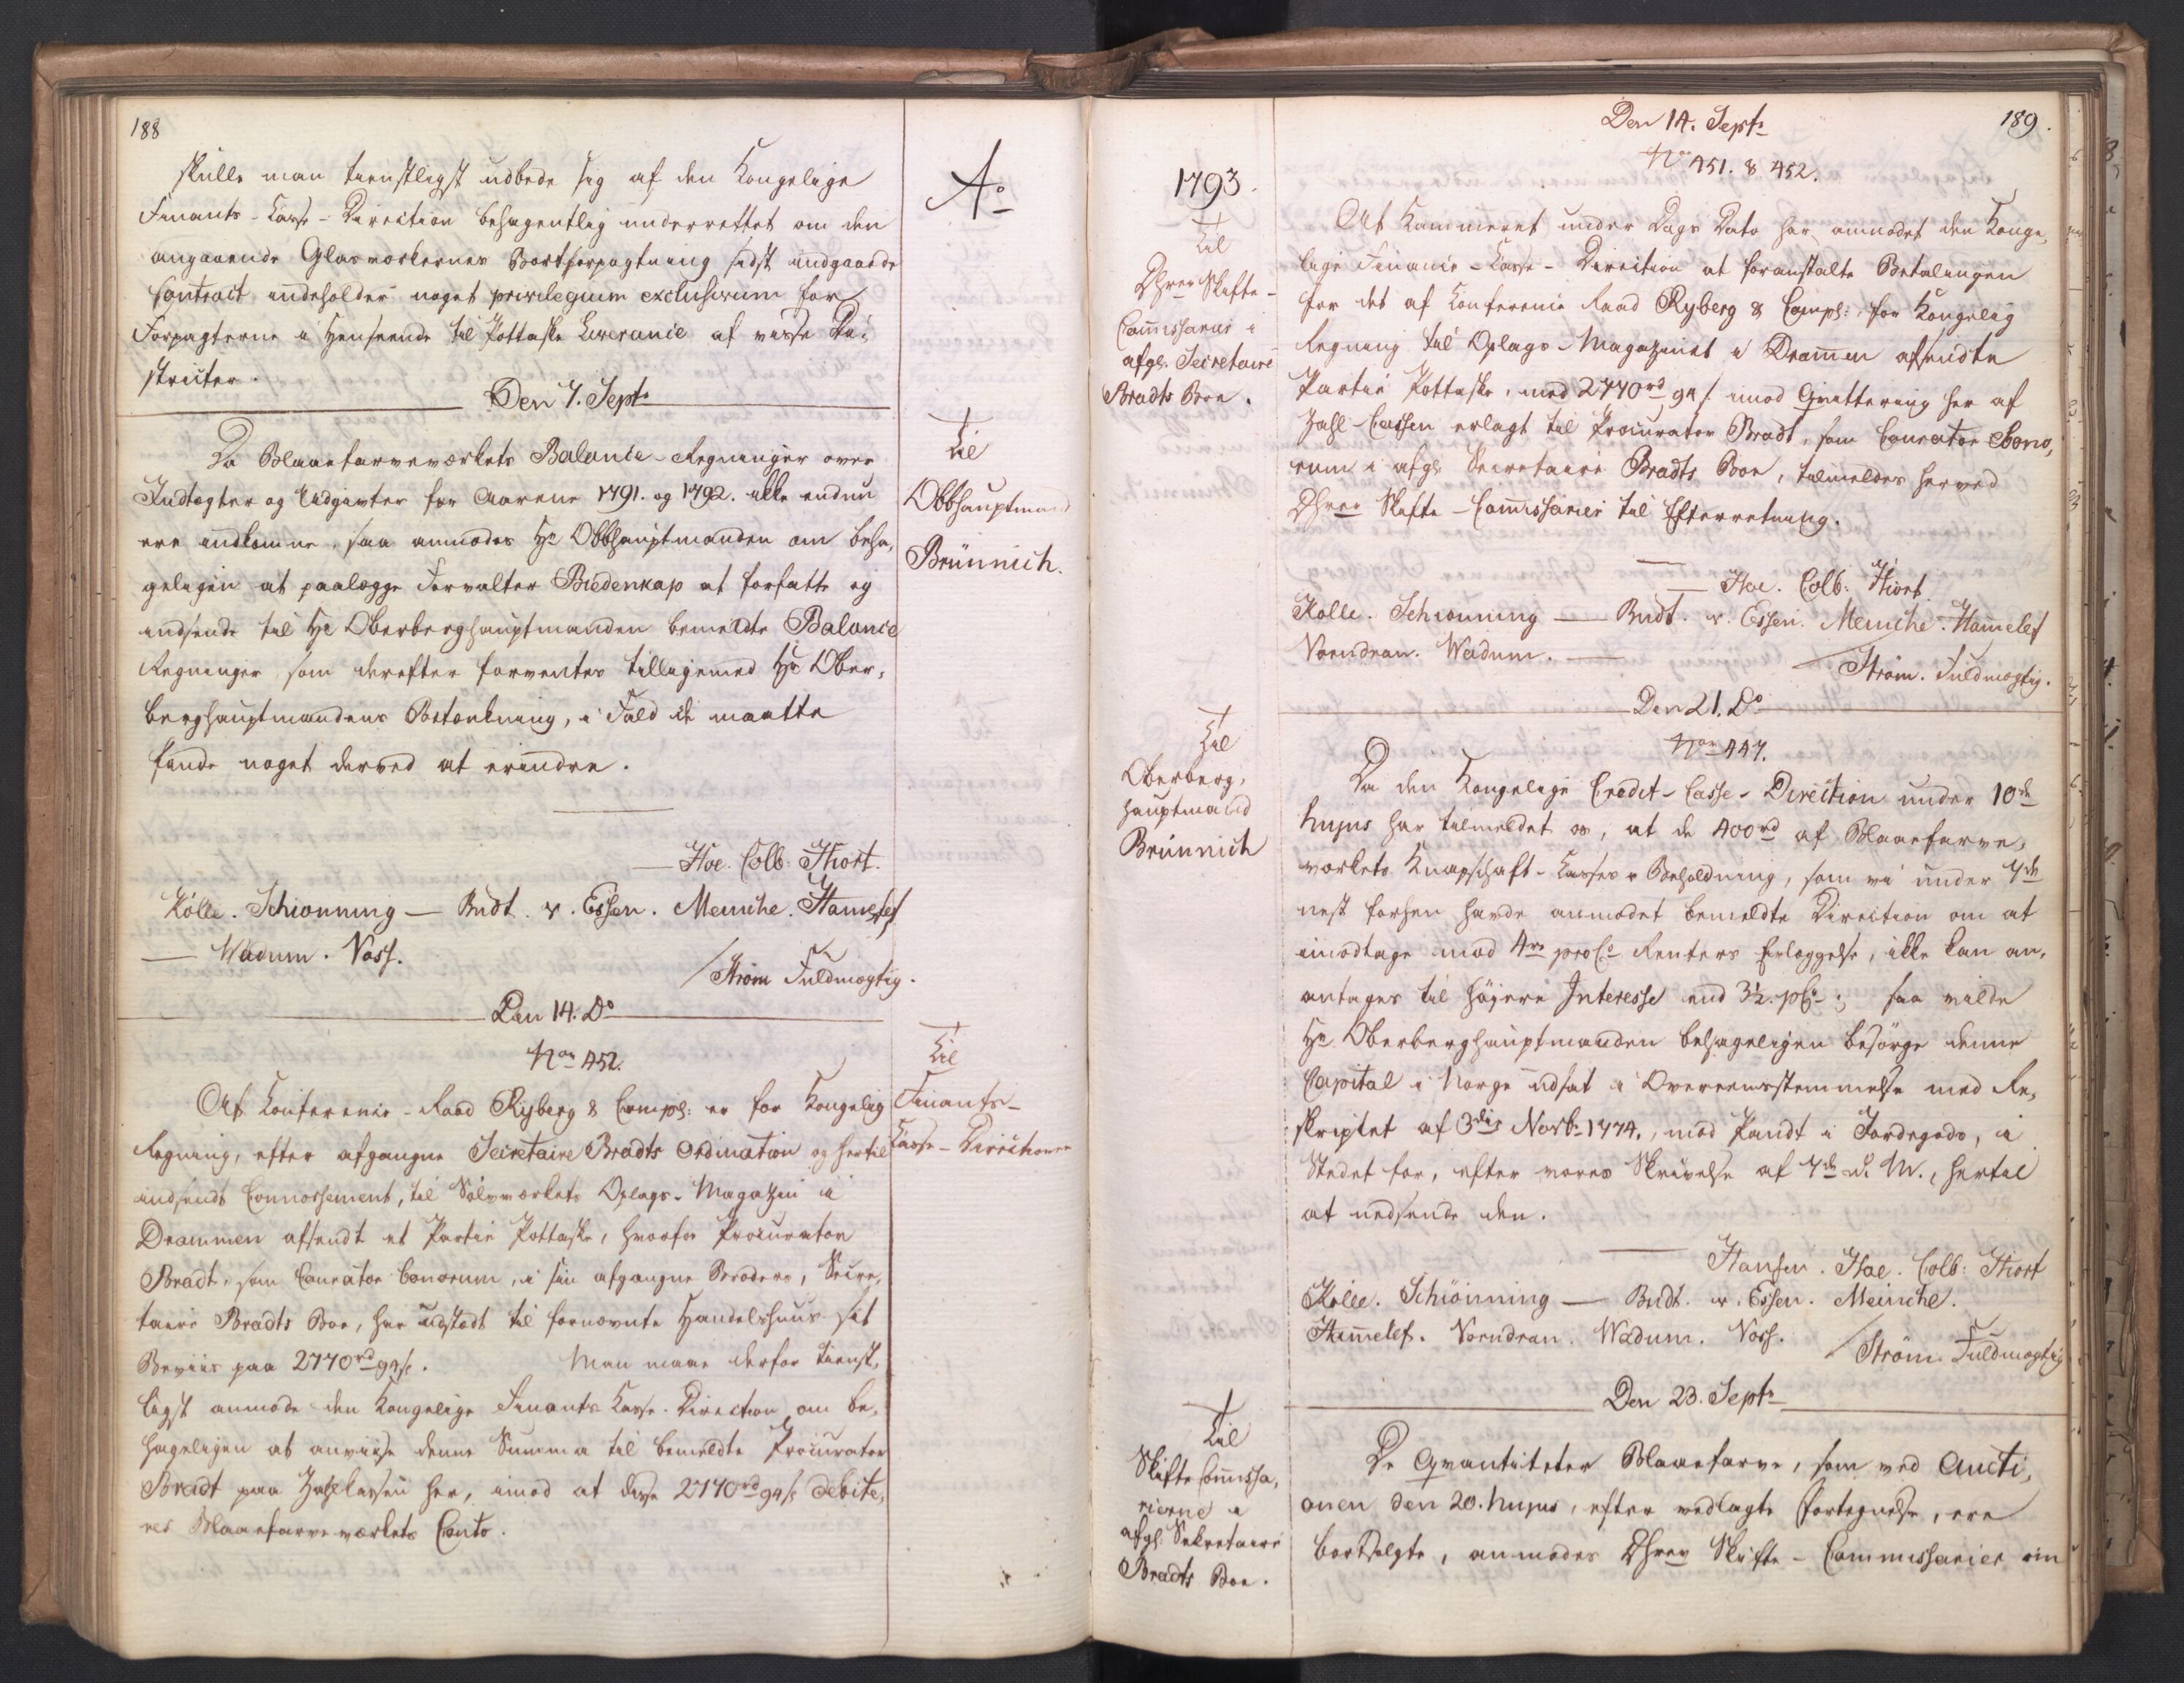 188
skulle man tienstligst udbede sig af den Kongelige
Finants-Casse-Direction behagentlig underrettet om den
angaaende Glasværkernes Bortforpagtning sidst indgaaede
Contract indeholder noget privilegium exclusivum for
Forpagterne i Henseende til Pottaske Leverance af visse Di-
stricter.
Den 7. Septr
Da Blaafarveværkets Balance-Regninger over
Indtægter og Udgivter for Aarene 1791. og 1792. ikke endnu
ere indkomne, saa anmodes Hr Obbhauptmanden om beha-
geligen at paalægge Forvalter Biedenkap at forfatte og
indsende til Hr Oberberghauptmanden bemeldte Balance
Regninger, som derefter forventes tilligemed Hr Ober-
berghauptmandens Betænkning, i Fald de maatte
finde noget derved at erindre.
Hoe. Colb: Thort.
Kölle. Schionning — Budt. v. Essen. Meinche. Hamelef
— Wadum. Voss.
/Strøm Fuldmægtig.
Den 14. Do
No 452.
Af Conference-Raad Ryberg & Comps: er for Kongelig
Regning, efter afgangne Secretaire Bradts Ordination og hertil
indsendt Connossement, til Sølvværkets Oplags-Magazin i
Drammen afsendt et Partie Pottaske, hvorfor Procurator
Bradt, som Curator bonorum, i sin afgangne Broders, Secre-
taire Bradts Boe, har udstædt til fornævnte Handelshuus sit
Beviis paa 2770rd 94s. Man maae derfor tienst-
ligst anmode den Kongelige Finants Casse-Direction om be-
hageligen at anviise denne Summa til bemeldte Procurator
Bradt paa Zahlkassen her, imod at disse 2770rd 94s debite-
res Blaafarveværkets Conto.
Ao
Til
Obbhauptmand
Brünnich.
Til
Finants-
Casse-Directionen
1793.
Til
Dhrer Skifte-
Commissarier i
afgl. Secretaire
Bradts Boe.
Til
Oberberg-
hauptmand
Brünnich
Til
Skifte Commissa-
rierne i
afgl: Sekretaire
Bradts Boe.
189.
Den 14. Septr
No 451. & 452.
At Kammeret under Dags Dato har anmodet den Konge-
lige Finance-Casse-Direction at foranstalte Betalingen
for det af Conference Raad Ryberg & Comps: for Kongelig
Regning til Oplags-Magazinet i Drammen afsendte
Partie Pottaske, med 2770rd 94s. imod Qvittering her af
Zahl-Cassen erlagt til Procurator Bradt, som Curator bono-
rum i afgl. Secretaire Bradts Boe, tilmeldes herved
Dhrer Skifte-Commissarier til Efterretning.
Hoe. Colb: Thort.
Kølle. Schionning — Budt. v. Essen. Meinche. Hamelef
Vorndran. Wadum.
/Strøm. Fuldmægtig.
Den 21. Do
No 447.
Da den Kongelige Credit-Casse-Direction under 10de
hujus har tilmeldet os, at de 400rd af Blaafarve-
værkets Knapschaft-Casses Beholdning, som vi under 7de
nest forhen havde anmodet bemeldte Direction om at
imodtage mod 4re proCo Renters Erlæggelse, ikke kan an-
antages til højere Interesse end 3½ pCo; saa vilde
Hr Oberberghauptmanden behageligen besørge denne
Capital i Norge udsat i Overeensstemmelse med Re-
skriptet af 3die Novbr 1774., mod Pandt i Jordegods, i
Stedet for, efter vores Skrivelse af 7de d. M., hertil
at nedsende den.
Hansen. Hoe. Colb: Thort
Kølle. Schiönning — Budt. v. Essen. Meinche.
Hamelef. Vorndran. Wadum. Voss.
/Strøm. Fuldmægtig
Den 23. Septr
De Qvantiteter Blaafarve, som ved Aucti-
onen den 20. hujus, efter vedlagte Fortegnelse, ere
bortsolgte, anmodes Dhrer Skifte-Commissarier om